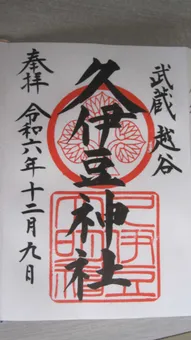 武蔵 越谷
久伊豆神社
奉拝 令和六年十二月九日